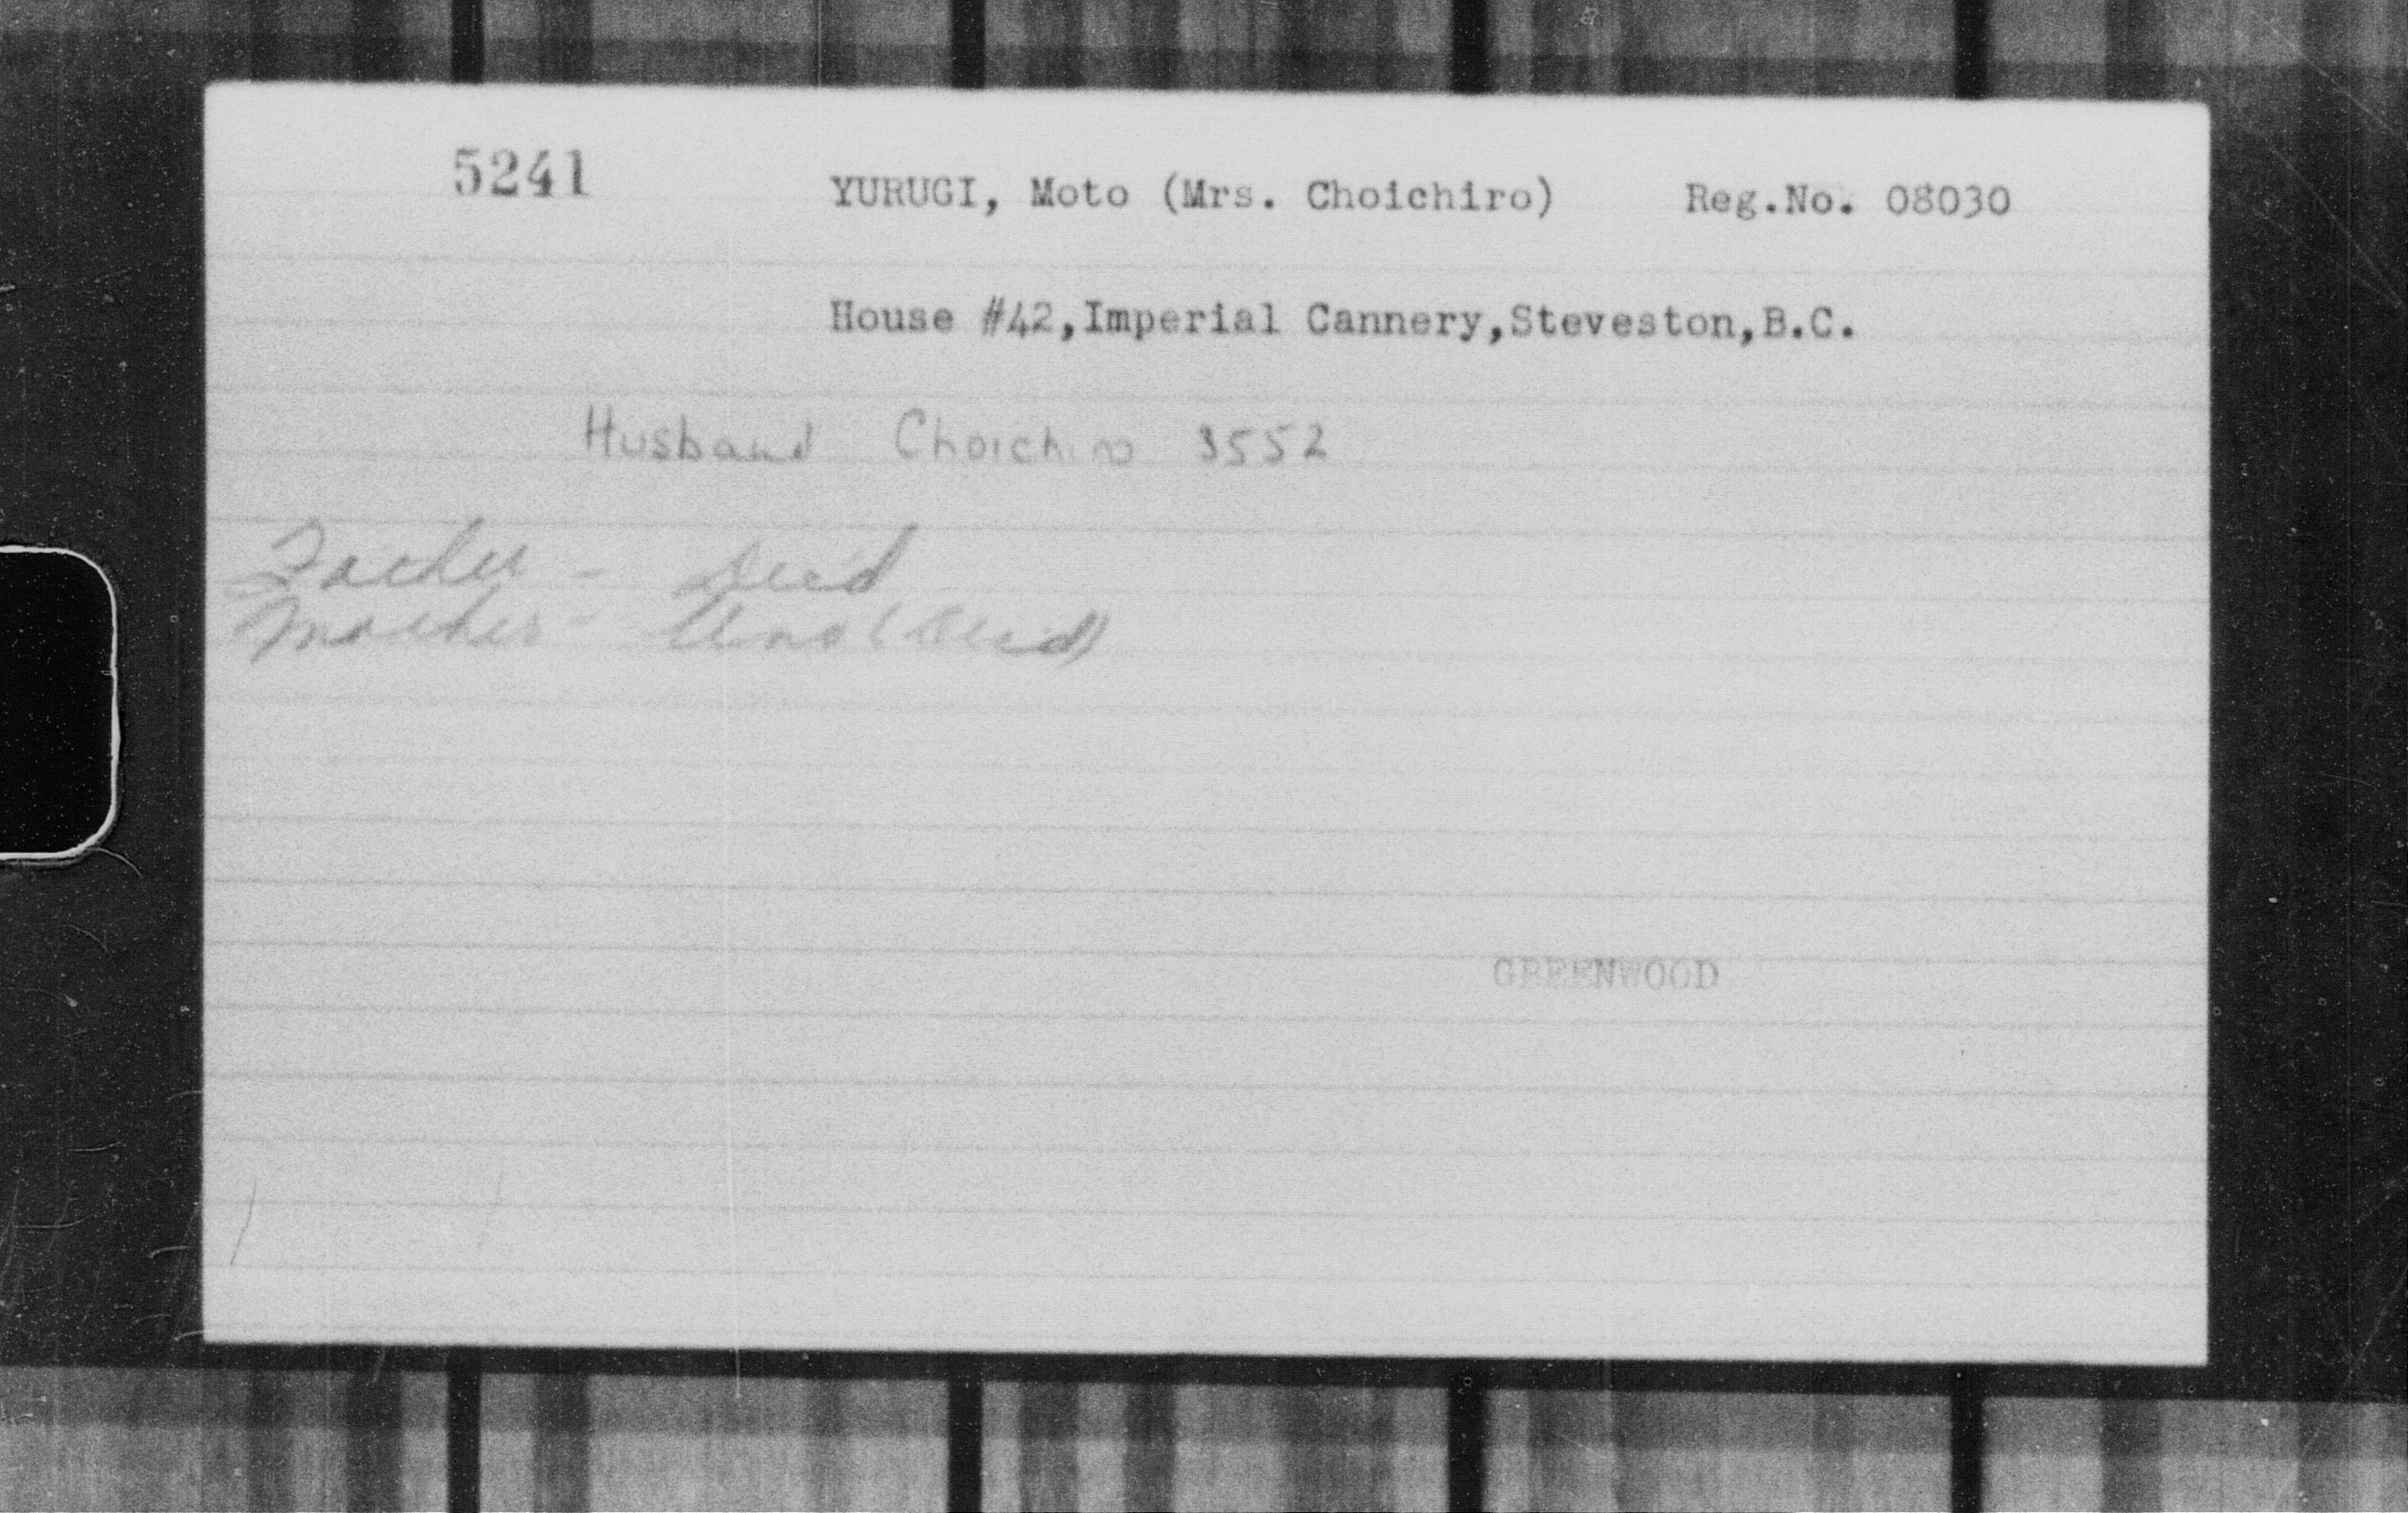 5241 YURUGI, Moto (Mrs. Choichiro) Reg.No. 08030
House #42,Imperial Cannery,Steveston,B.C.
Husband Choichiro 3552
Father - Dec'd
Mother - (Dec'd)
GREENWOOD